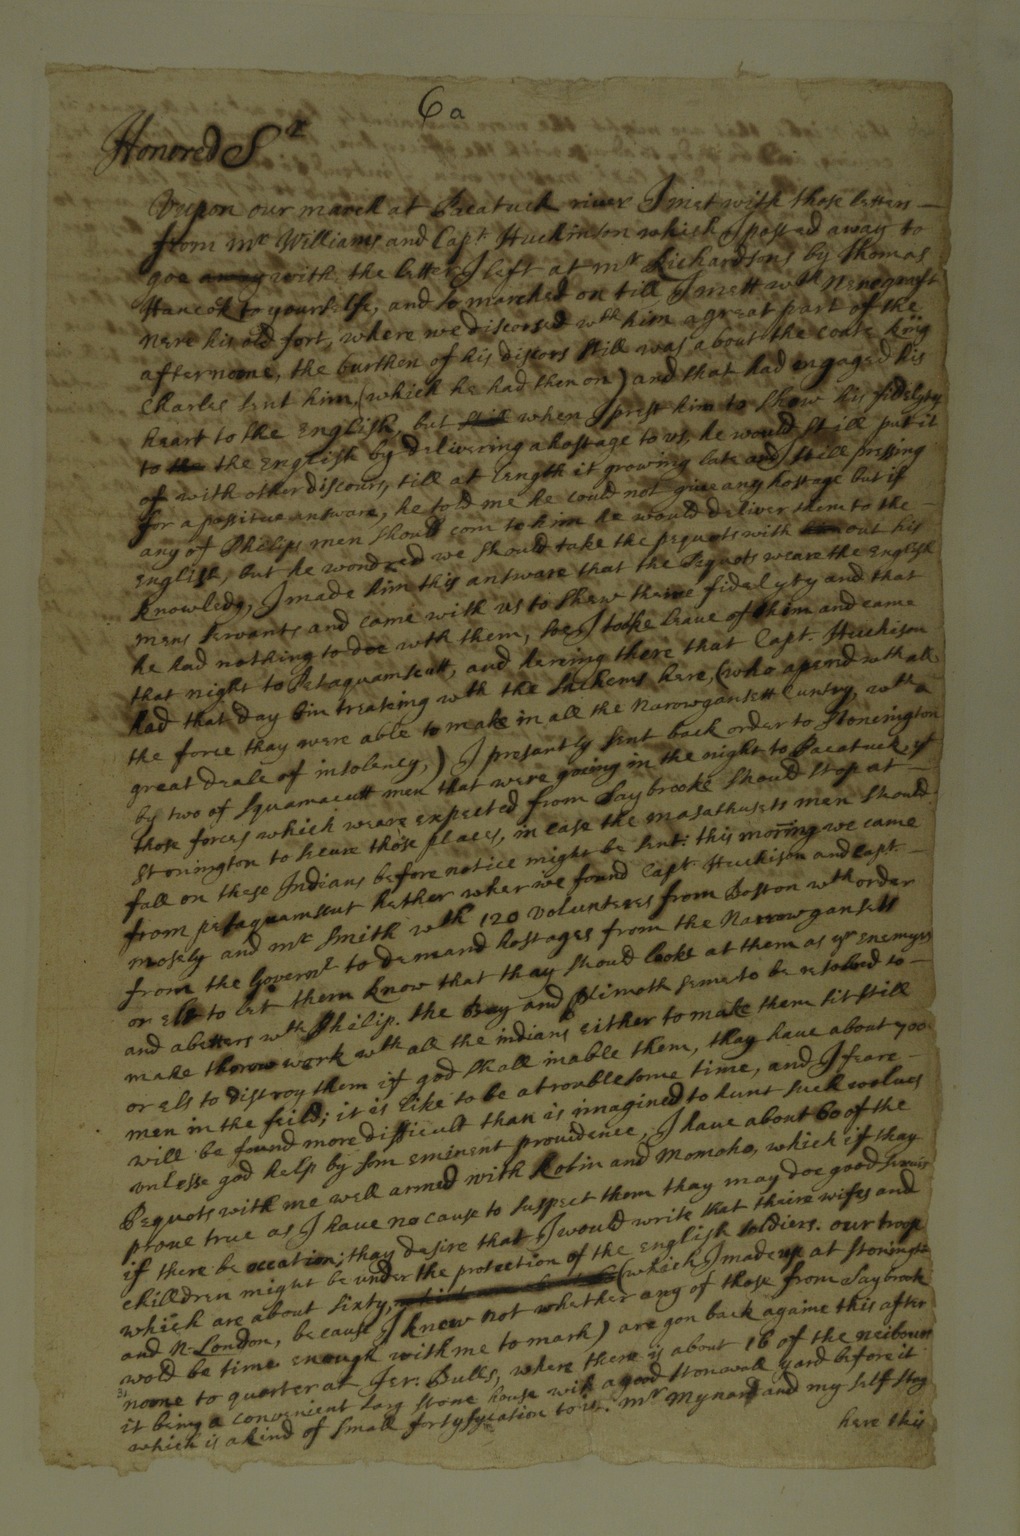 6a
Honored Sr
Vupon our march at Pacatuck river I met with those letters
from Mr Williams and Capt Huchinson which I posted away to
goe away with the letter I left at mr Richardsons by Thomas
Hancok to yourselfe, and so marched on till I mett wth Nenegraft
nere his old fort, where we discorsed wth him a great part of the
afternoone, the burthen of his discors still was about the coate king
Charles sent him (which he had then on) and that had engaged his
heart to the English, but still when I prest him to show his fidelyty
to the the English by delivering a hostage to us, he would still put it
of with other discours, till at length it growing late and still pressing
for a possitive answare, he told me he could not give any hostage but if
any of Philips men should com to him he would deliver them to the
English, but he wondred we should take the pequots with out his
knowledg, I made him this answare that the Pequots weare the English
mens servants and came with us to shew thaire fidelyty and that
he had nothing to doe wth them, soe I tooke leave of him and came
that night to Petaquamscutt, and hereing there that Capt. Huchison
had that day bin treating wth the Sachems here, (who apered wth all
the force thay were able to make in all the Narowgansett Cuntry, wth a
great deale of insolency,) I presantly sent back order to Stonington
by two of Squamacutt men that were goeing in the night to Pacatuck yt
those forces which weare expected from Saybrooke should stop at
Stonington to secure those places, in case the masathusets men should
fall on these Indians before notice might be sent: this morning we came
from petaquamscut hether wher we found Capt Huchison and Capt
mosely and mr Smith wth 120 Volunteres from Boston wth order
from the Governr to demand hostages from the Narrowgansets
or els to let them know that thay should looke at them as yr enemyes
and abetters wth Philip. the Bay and Plimoth seme to be resolved to
make thorow work wth all the indians either to make them sit still
or els to distroy them if god shall inable them, thay have about 700
men in the feild; it is like to be a troublesome time, and I feare
will be found more difficult than is imagined to hunt such wolves
unlesse god help by som eminent providence, I have about 60 of the
Pequots with me well armed with Robin and Momoho, which if thay
prove true as I have no cause to suspect them thay may doe good servis
if there be occation; thay desire that I would write that thaire wifes and
chilldren might be under the protection of the english soldiers. our troop
which are about sixty, (which I made up at Stonington
and N-London, because I knew not whether any of those from Saybrook
wold be time enough with me to march) are gon back againe this after
noone to quarter at Jer. Bulls, where there is about 16 of the neibours
it being a convenient larg stone house with a good stonwall yard before it
which is a kind of small fortyfycation to it. Mr Mynard and my self stay
here this